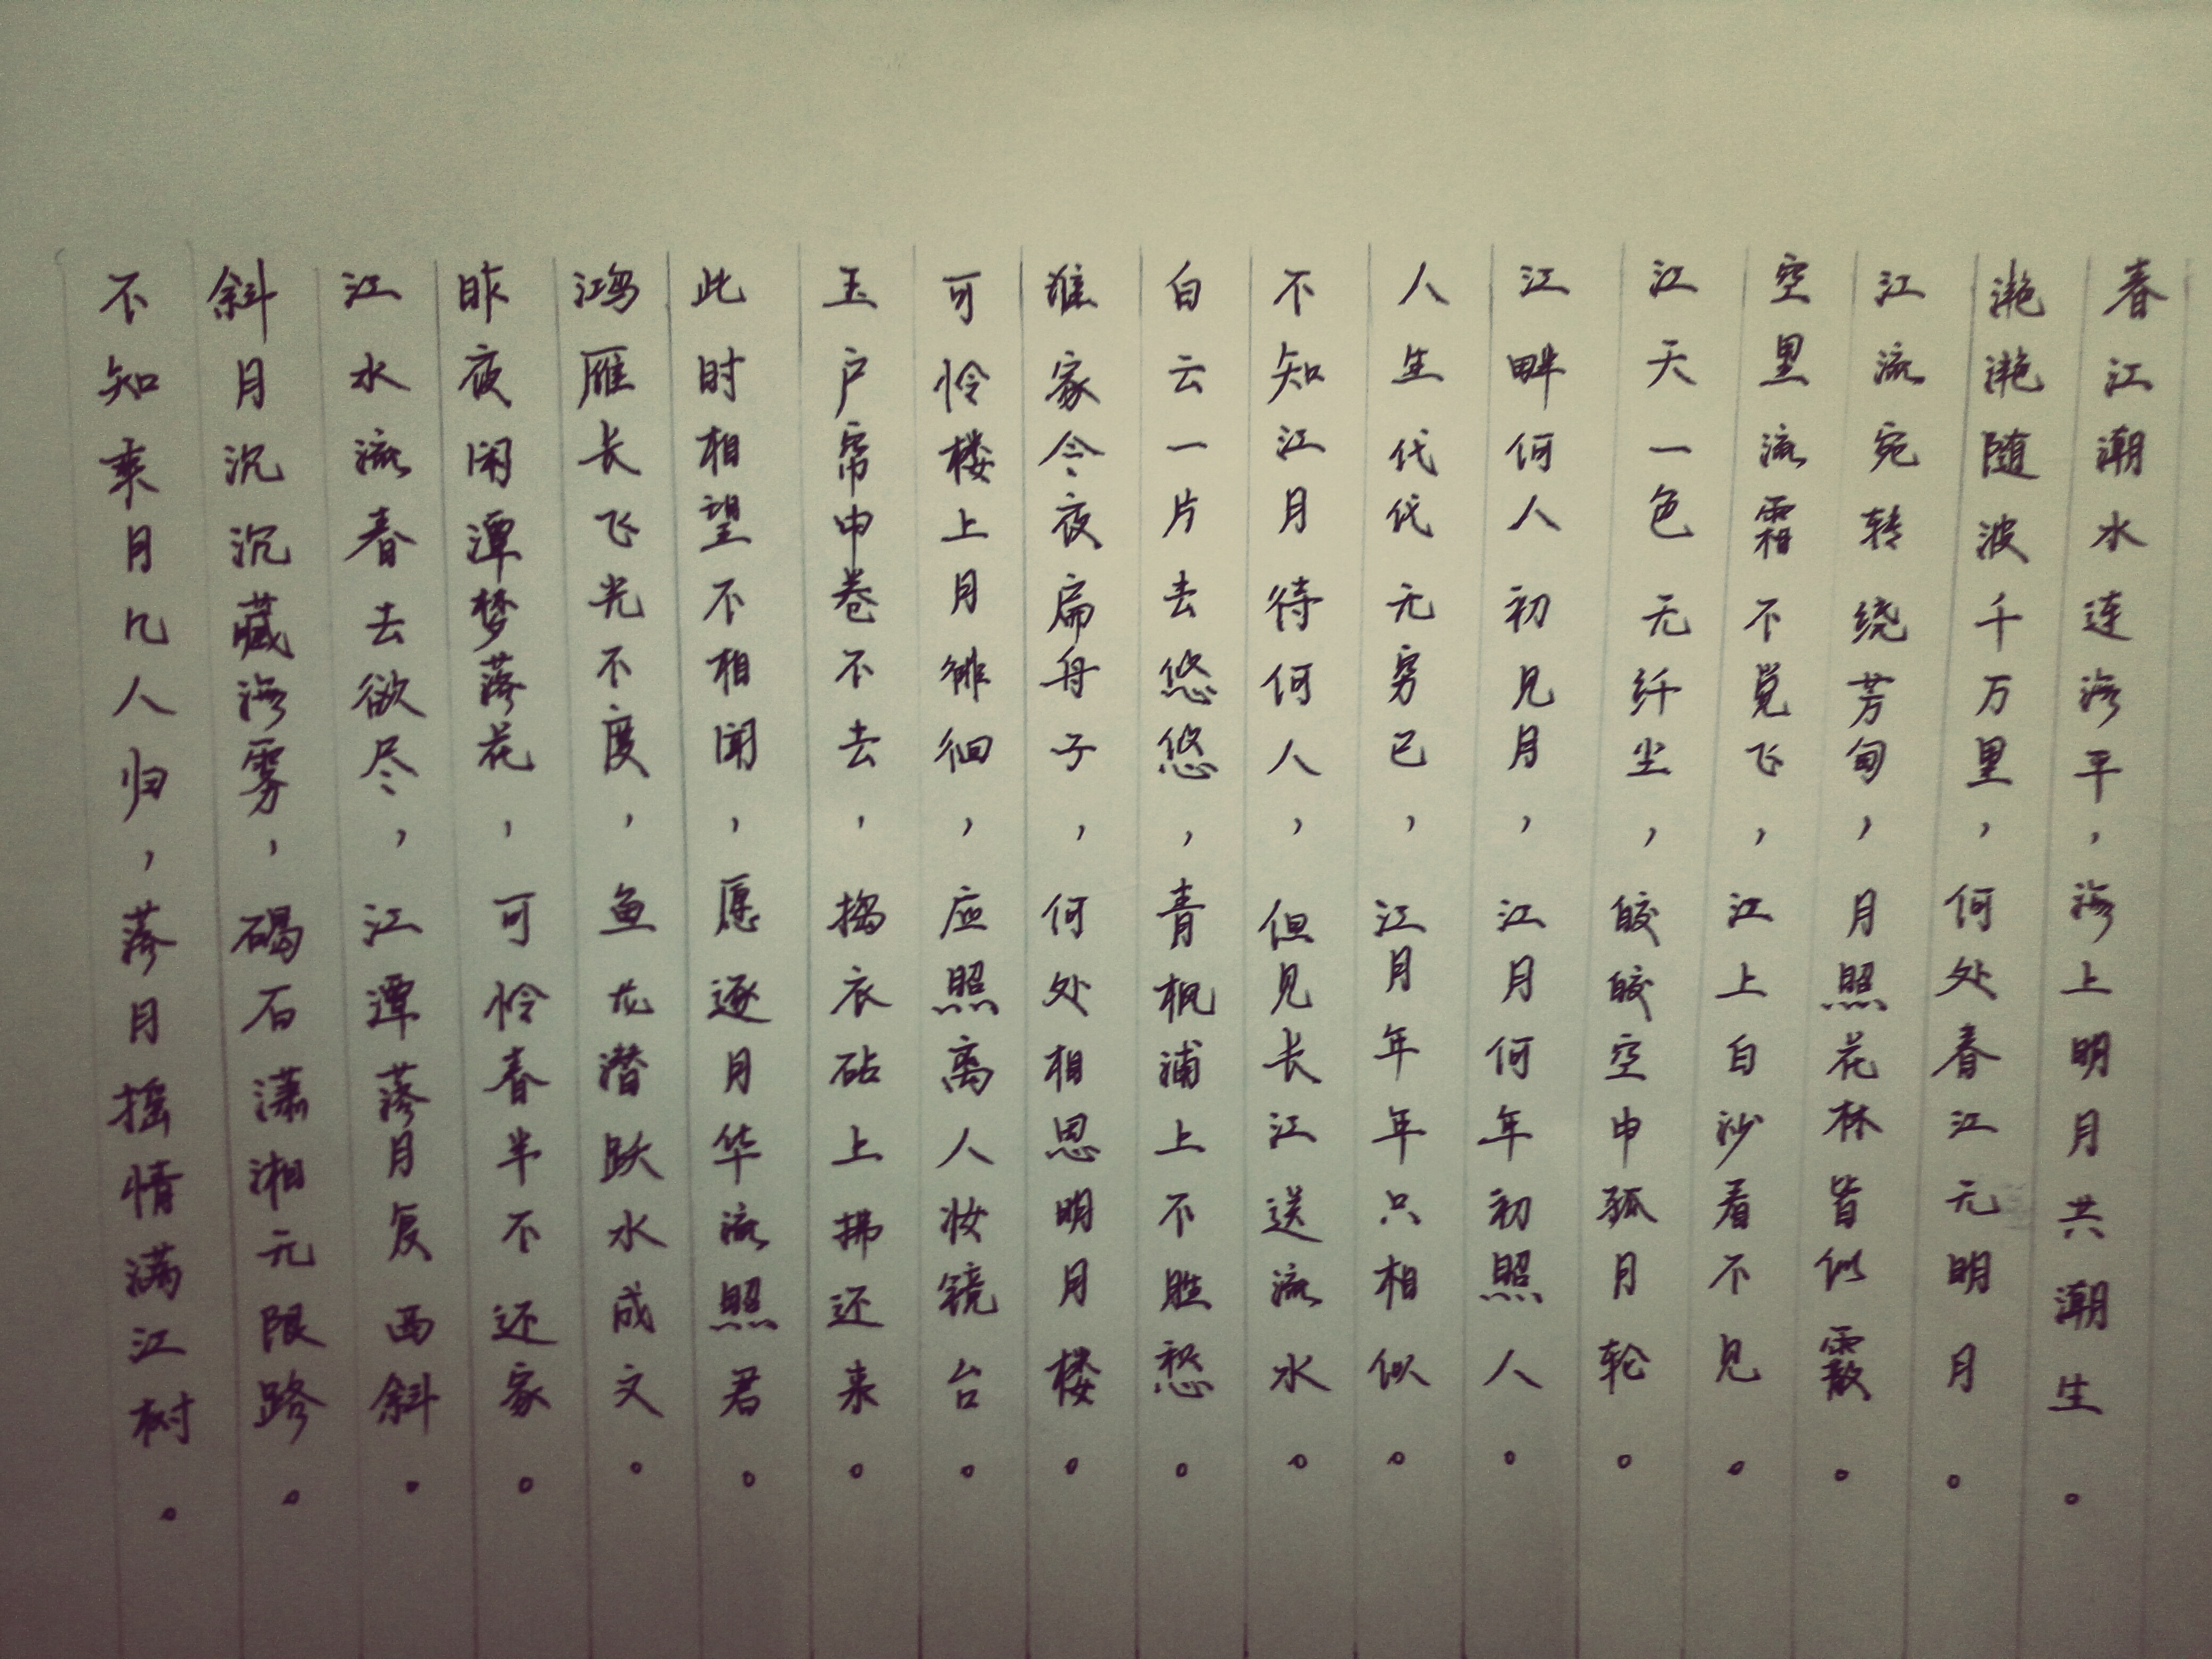 春江潮水连海平，海上明月共潮生。
滟滟随波千万里，何处春江无明月。
江流宛转绕芳甸，月照花林皆似霰。
空里流霜不觉飞，江上白沙看不见。
江天一色无纤尘，皎皎空中孤月轮。
江畔何人初见月，江月何年初照人。
人生代代无穷已，江月年年只相似。
不知江月待何人，但见长江送流水。
白云一片去悠悠，青枫浦上不胜愁。
谁家今夜扁舟子，何处相思明月楼。
可怜楼上月徘徊，应照离人妆镜台。
玉户帘中卷不去，捣衣砧上拂还来。
此时相望不相闻，愿逐月华流照君。
鸿雁长飞光不度，鱼龙潜跃水成文。
昨夜闲潭梦落花，可怜春半不还家。
江水流春去欲尽，江潭落月复西斜。
斜月沉沉藏海雾，碣石潇湘无限路。
不知乘月几人归，落月摇情满江树。